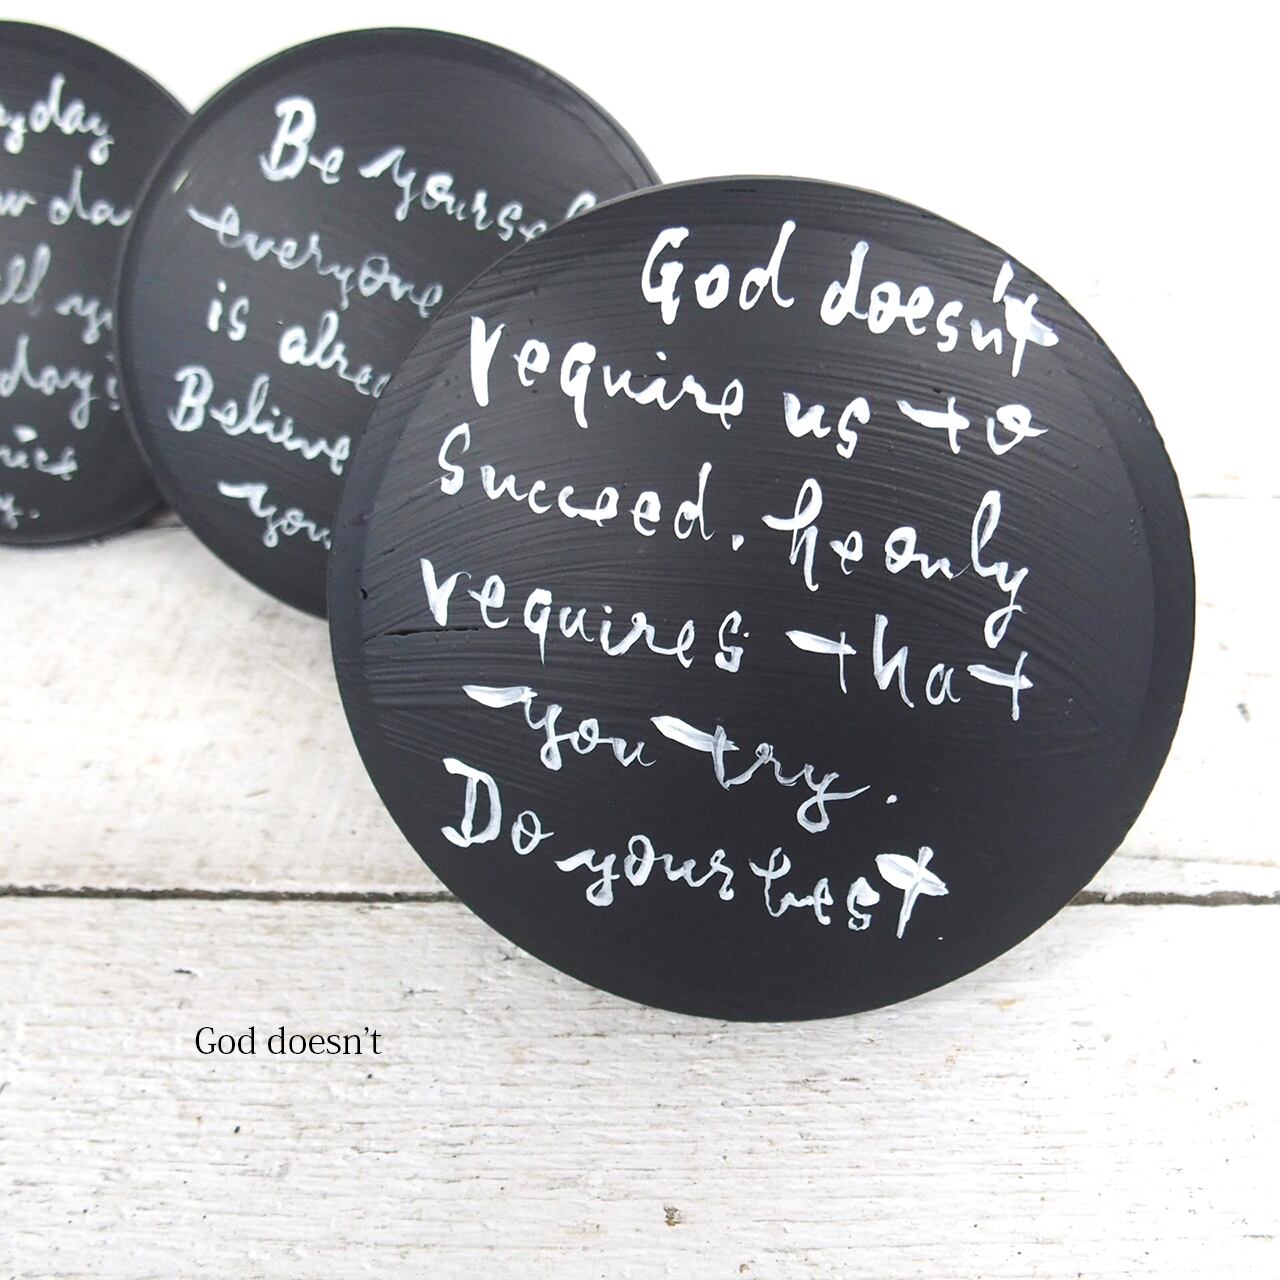 day
da
Be yourself
everyone
is alrea
Believe
you
God doesn't
require us to
succeed. he only
requires that
you try.
Do your best
God doesn't